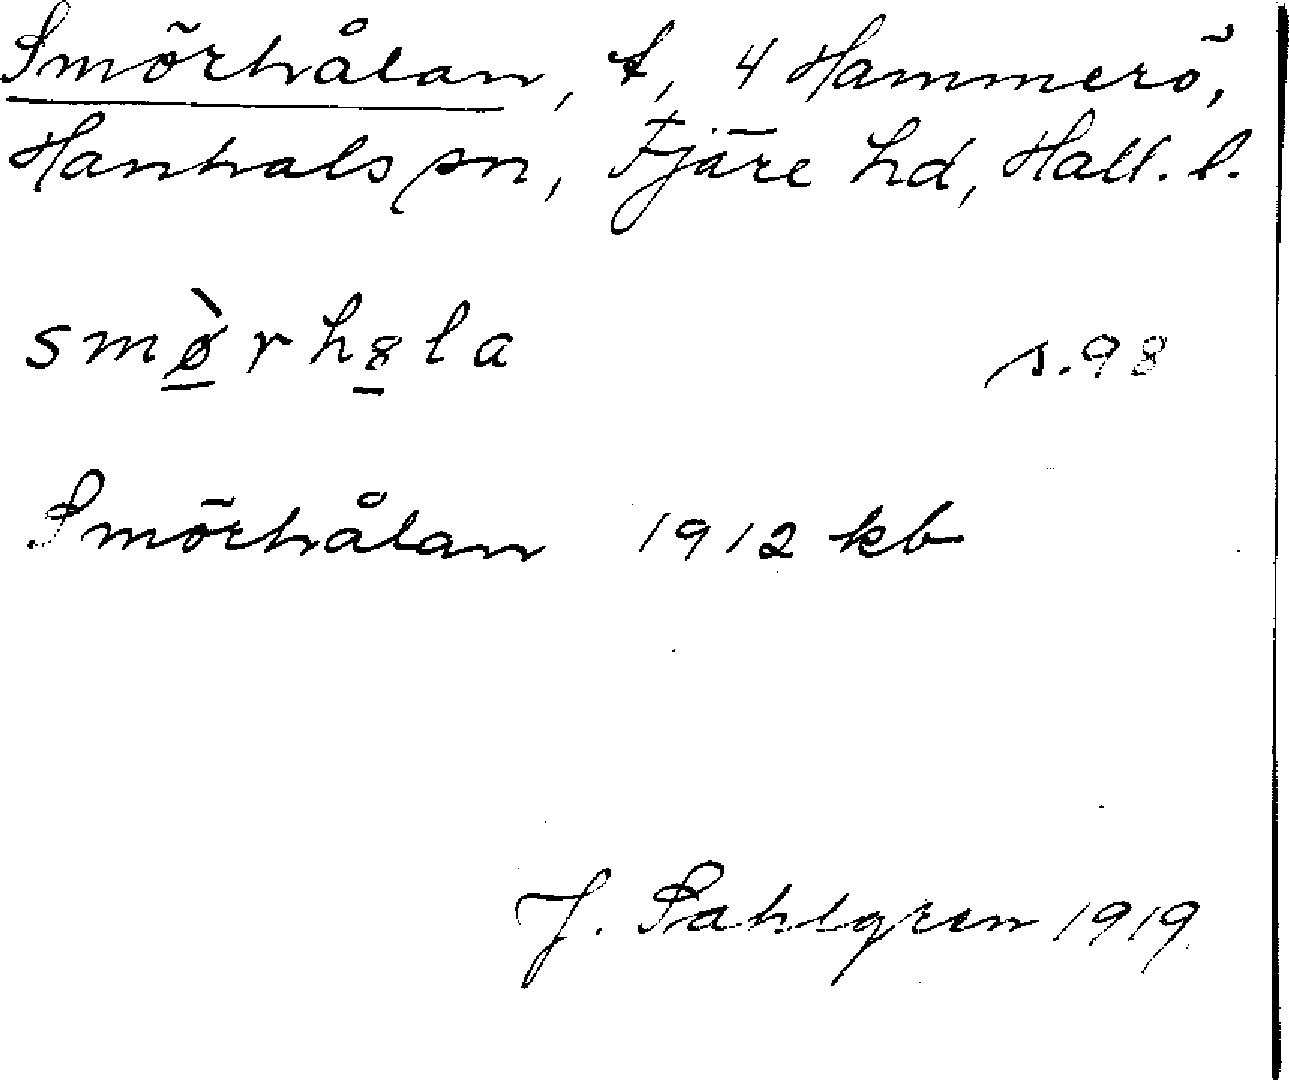 Smörhålan, t, 4 Hammerö,
Hanhals sn, Fjäre hd, Hall. l.
smø̀rh8la s. 98
Smörhålan 1912 kb
J. Sahlgren 1919